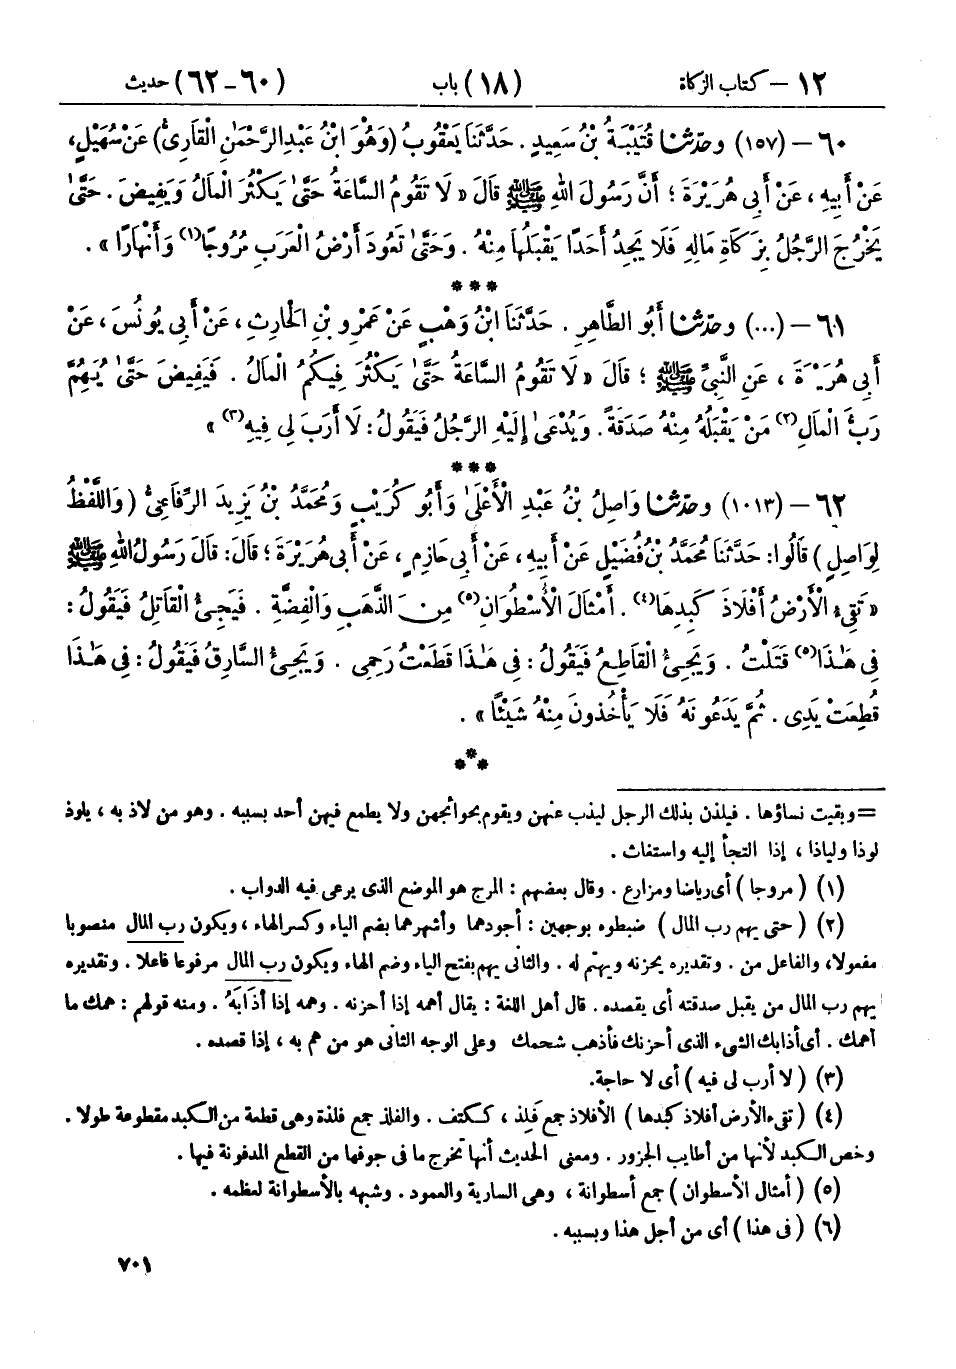 ١٢ – كتاب الزكاة (١٨) باب (٦٠-٦٢) حديث
٦٠ – (١٥٧) وحدّثنا قُتَيْبَةُ بْنُ سَعِيدٍ . حَدَّثَنَا يَعْقُوبُ (وَهُوَ ابْنُ عَبْدِ الرَّحْمَٰنِ الْقَارِيُّ) عَنْ سُهَيْلٍ،
عَنْ أَبِيهِ ، عَنْ أَبِي هُرَيْرَةَ ؛ أَنَّ رَسُولَ اللهِ ﷺ قَالَ « لَا تَقُومُ السَّاعَةُ حَتَّىٰ يَكْثُرَ الْمَالُ وَيَفِيضَ . حَتَّىٰ
يَخْرُجَ الرَّجُلُ بِزَكَاةِ مَالِهِ فَلَا يَجِدُ أَحَدًا يَقْبَلُهَا مِنْهُ . وَحَتَّىٰ تَعُودَ أَرْضُ الْعَرَبِ مُرُوجًا(١) وَأَنْهَارًا » .
***
٦١ – (...) وحدّثنا أَبُو الطَّاهِرِ . حَدَّثَنَا ابْنُ وَهْبٍ عَنْ عَمْرِو بْنِ الْحَارِثِ ، عَنْ أَبِي يُونُسَ ، عَنْ
أَبِي هُرَيْرَةَ ، عَنِ النَّبِيِّ ﷺ ؛ قَالَ « لَا تَقُومُ السَّاعَةُ حَتَّىٰ يَكْثُرَ فِيكُمُ الْمَالُ . فَيَفِيضَ حَتَّىٰ يُهِمَّ
رَبَّ الْمَالِ(٢) مَنْ يَقْبَلُهُ مِنْهُ صَدَقَةً . وَيُدْعَىٰ إِلَيْهِ الرَّجُلُ فَيَقُولُ : لَا أَرَبَ لِي فِيهِ(٣) »
***
٦٢ – (١٠١٣) وحدّثنا وَاصِلُ بْنُ عَبْدِ الْأَعْلَىٰ وَأَبُو كُرَيْبٍ وَمُحَمَّدُ بْنُ يَزِيدَ الرِّفَاعِيُّ ( وَاللَّفْظُ
لِوَاصِلٍ ) قَالُوا: حَدَّثَنَا مُحَمَّدُ بْنُ فُضَيْلٍ عَنْ أَبِيهِ ، عَنْ أَبِي حَازِمٍ ، عَنْ أَبِي هُرَيْرَةَ ؛ قَالَ: قَالَ رَسُولُ اللهِ ﷺ
« تَقِيءُ الْأَرْضُ أَفْلَاذَ كَبِدِهَا(٤) . أَمْثَالَ الْأُسْطُوَانِ(٥) مِنَ الذَّهَبِ وَالْفِضَّةِ . فَيَجِيءُ الْقَاتِلُ فَيَقُولُ :
فِي هَٰذَا(٥) قَتَلْتُ . وَيَجِيءُ الْقَاطِعُ فَيَقُولُ : فِي هَٰذَا قَطَعْتُ رَحِمِي . وَيَجِيءُ السَّارِقُ فَيَقُولُ : فِي هَٰذَا
قُطِعَتْ يَدِي . ثُمَّ يَدَعُونَهُ فَلَا يَأْخُذُونَ مِنْهُ شَيْئًا » .
***
= وبقيت نساؤها . فيلذن بذلك الرجل ليذب عنهن ويقوم بحوائجهن ولا يطمع فيهن أحد بسببه . وهو من لاذ به ، يلوذ
لوذا ولياذا ، إذا التجأ إليه واستغاث .
(١) ( مروجا ) أى رياضا ومزارع . وقال بعضهم : المرج هو الموضع الذى يرعى فيه الدواب .
(٢) ( حتى يهم رب المال ) ضبطوه بوجهين : أجودهما وأشهرهما بضم الياء وكسر الهاء ، ويكون رب المال منصوبا
مفعولا، والفاعل من . وتقديره يحزنه ويهتم له . والثانى يهم بفتح الياء وضم الهاء ويكون رب المال مرفوعا فاعلا . وتقديره
يهم رب المال من يقبل صدقته أى يقصده . قال أهل اللغة : يقال أهمه إذا أحزنه . وهمه إذا أذابَهُ . ومنه قولهم : همك ما
أهمك . أى أذابك الشىء الذى أحزنك فأذهب شحمك وعلى الوجه الثانى هو من هم به ، إذا قصده .
(٣) ( لا أرب لى فيه ) أى لا حاجة.
(٤) ( تقىء الأرض أفلاذ كبدها ) الأفلاذ جمع فِلذ ، ككتف . والفلذ جمع فلذة وهى قطعة من الكبد مقطوعة طولا .
وخص الكبد لأنها من أطايب الجزور . ومعنى الحديث أنها تخرج ما فى جوفها من القطع المدفونة فيها .
(٥) ( أمثال الأسطوان ) جمع أسطوانة ، وهى السارية والعمود . وشبهه بالأسطوانة لعظمه .
(٦) ( فى هذا ) أى من أجل هذا وبسببه .
٧٠١